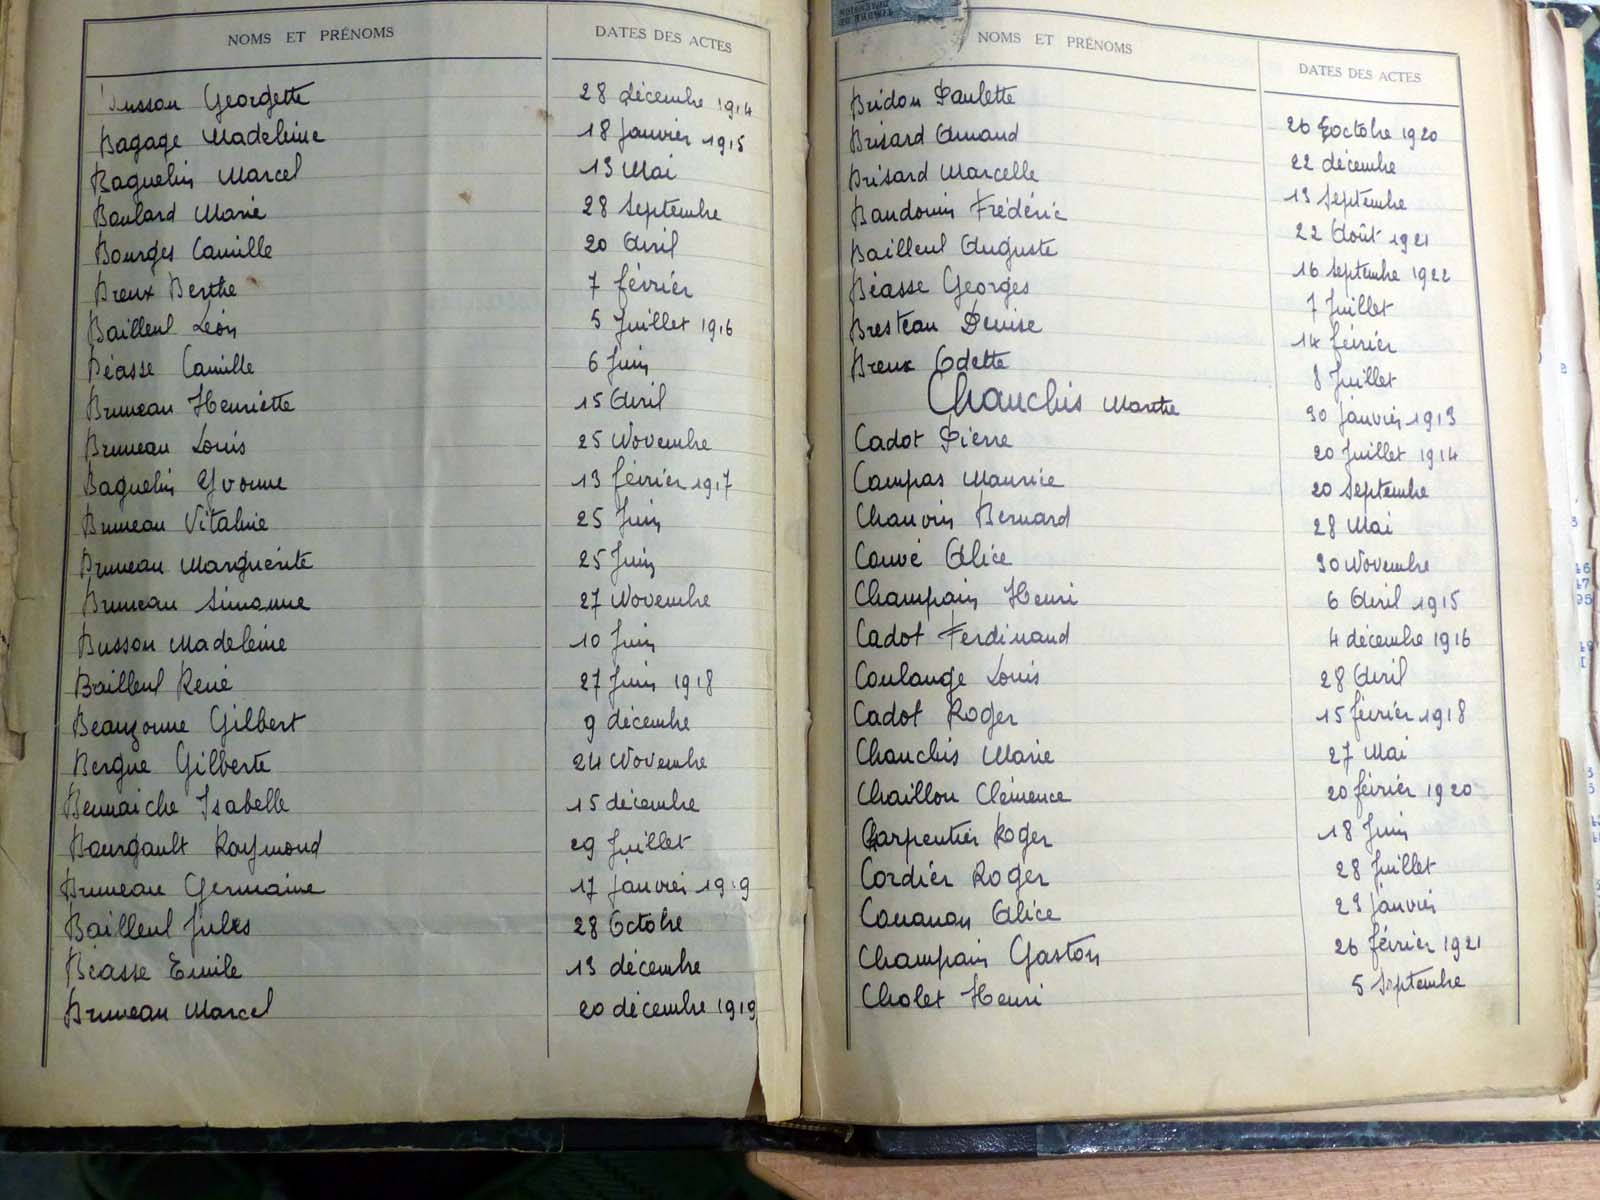 NOMS ET PRÉNOMS DATES DES ACTES
Busson Georgette 28 décembre 1914
Bagage Madeleine 18 janvier 1915
Baguelin Marcel 13 Mai
Boulard Marie 28 Septembre
Bourges Camille 20 Avril
Breux Berthe 7 février
Bailleul Léon 5 Juillet 1916
Béasse Camille 6 Juin
Bruneau Henriette 15 Avril
Bruneau Louis 25 Novembre
Baguelin Yvonne 13 février 1917
Bruneau Vitaline 25 Juin
Bruneau Marguerite 25 Juin
Bruneau Simonne 27 Novembre
Busson Madeleine 10 Juin
Bailleul René 27 Juin 1918
Beauzonne Gilbert 9 décembre
Bergue Gilberte 24 Novembre
Bennaiche Isabelle 15 décembre
Bourgault Raymond 29 Juillet
Bruneau Germaine 17 janvier 1919
Bailleul Jules 28 Octobre
Béasse Emile 13 décembre
Bruneau Marcel 20 décembre 1919
NOMS ET PRÉNOMS DATES DES ACTES
Bridon Paulette 26 octobre 1920
Brisard Armand 22 décembre
Brisard Marcelle 13 Septembre
Baudouin Frédéric 22 Août 1921
Bailleul Auguste 16 septembre 1922
Béasse Georges 7 Juillet
Bresteau Denise 14 février
Breux Odette 8 Juillet
Chauchis Marthe 30 janvier 1913
Cadot Pierre 20 Juillet 1914
Campas Maurice 20 Septembre
Chauvin Bernard 28 Mai
Couvé Alice 30 Novembre
Champain Henri 6 Avril 1915
Cadot Ferdinand 4 décembre 1916
Coulange Louis 28 Avril
Cadot Roger 15 février 1918
Chauchis Marie 27 Mai
Chaillou Clémence 20 février 1920
Carpentier Roger 18 Juin
Cordier Roger 28 Juillet
Couanon Alice 29 janvier
Champain Gaston 26 février 1921
Cholet Henri 5 Septembre